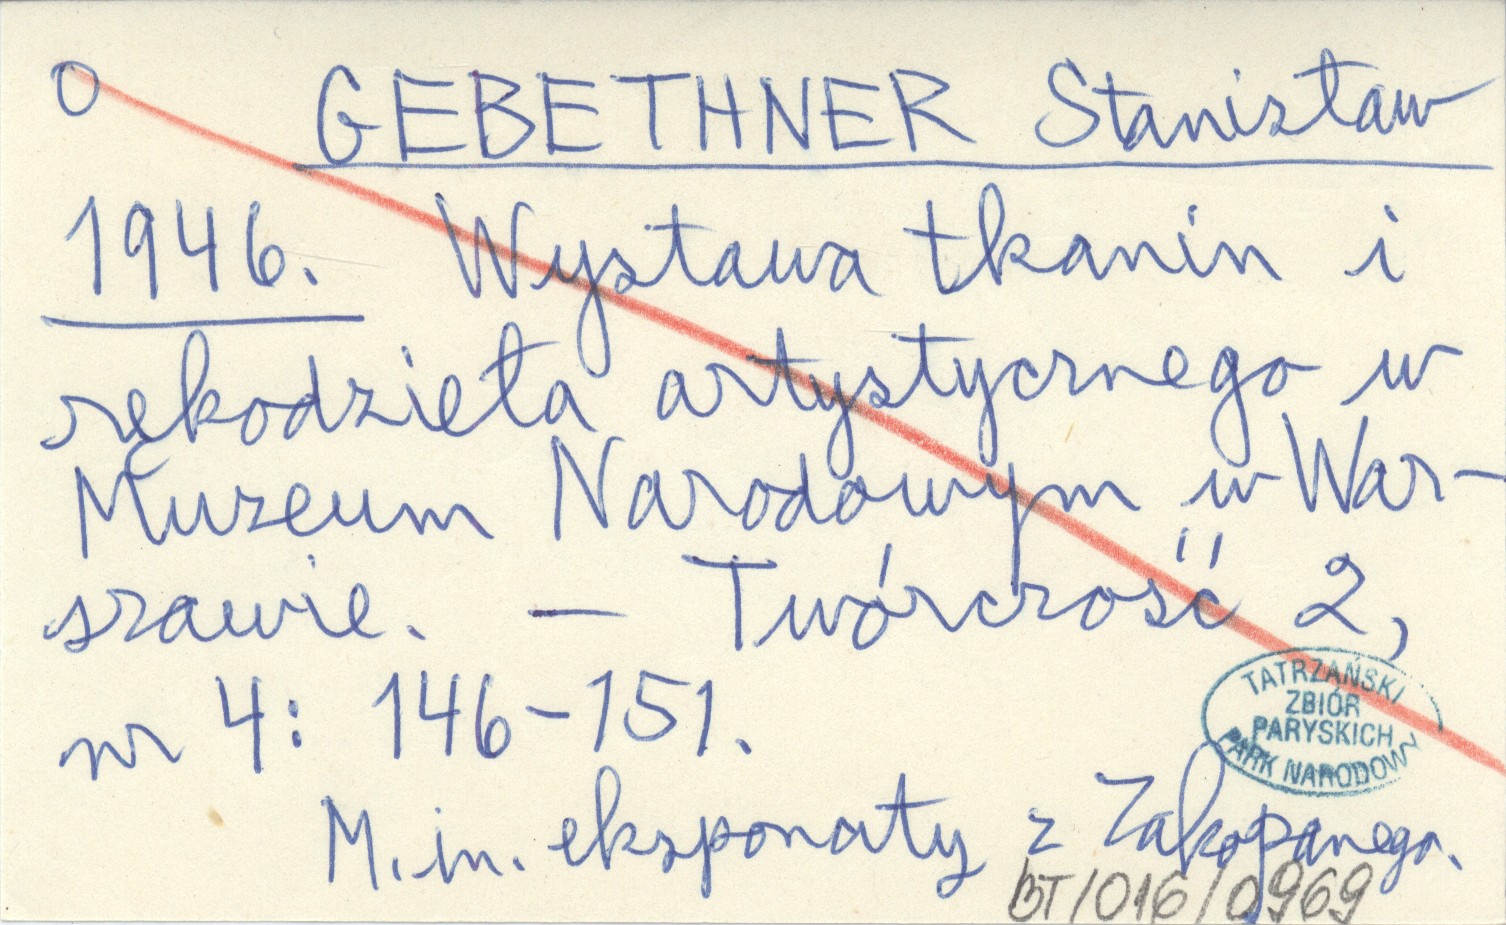 O GEBETHNER Stanisław
1946. Wystawa tkanin i
rękodzieła artystycznego w
Muzeum Narodowym w War-
szawie. — Twórczość 2,
nr 4: 146-151.
TATRZAŃSKI
ZBIÓR
PARYSKICH
PARK NARODOWY
M.in. eksponaty z Zakopanego.
BT/016/0969